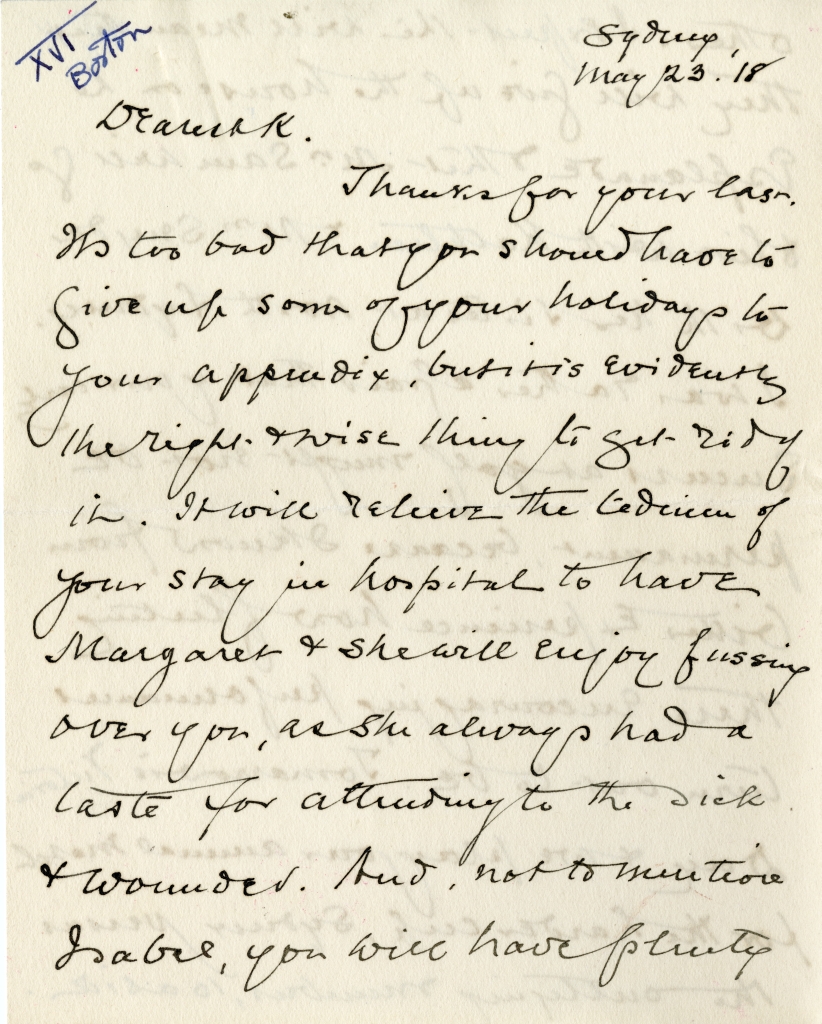 XVI
Boston
Sydney,
May 23. 18
Dearest K.
Thanks for your last.
It's too bad that you should have to
give up some of your holidays to
your appendix, but it is evidently
the right & wise thing to get rid of
it. It will relieve the tedium of
your stay in hospital to have
Margaret & she will enjoy fussing
over you, as she always had a
taste for attending to the sick
& wounded. And, not to mention
Isabel, you will have plenty